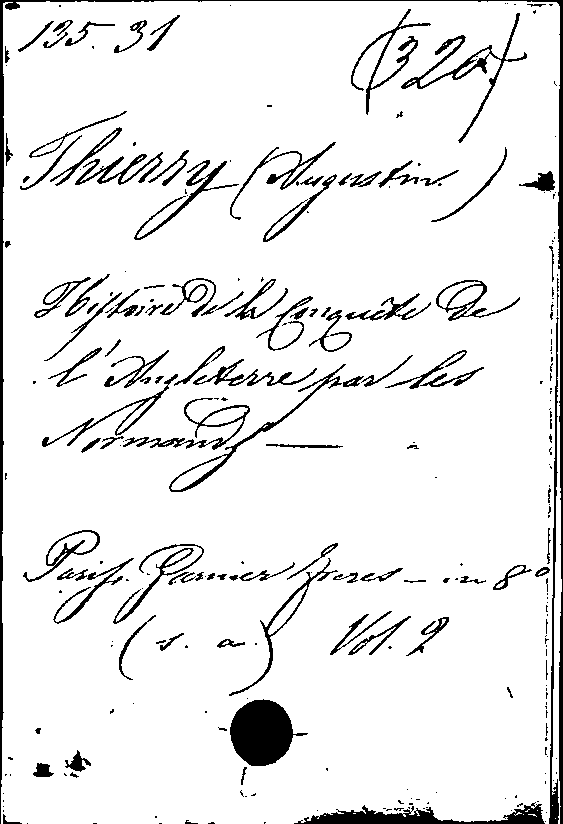 135. 31
(320)
Thierry (Augustin.)
Histoire de la Conquête de
l'Angleterre par les
Normands —
Paris. Garnier freres — in 8º
(s. a.) Vol. 2